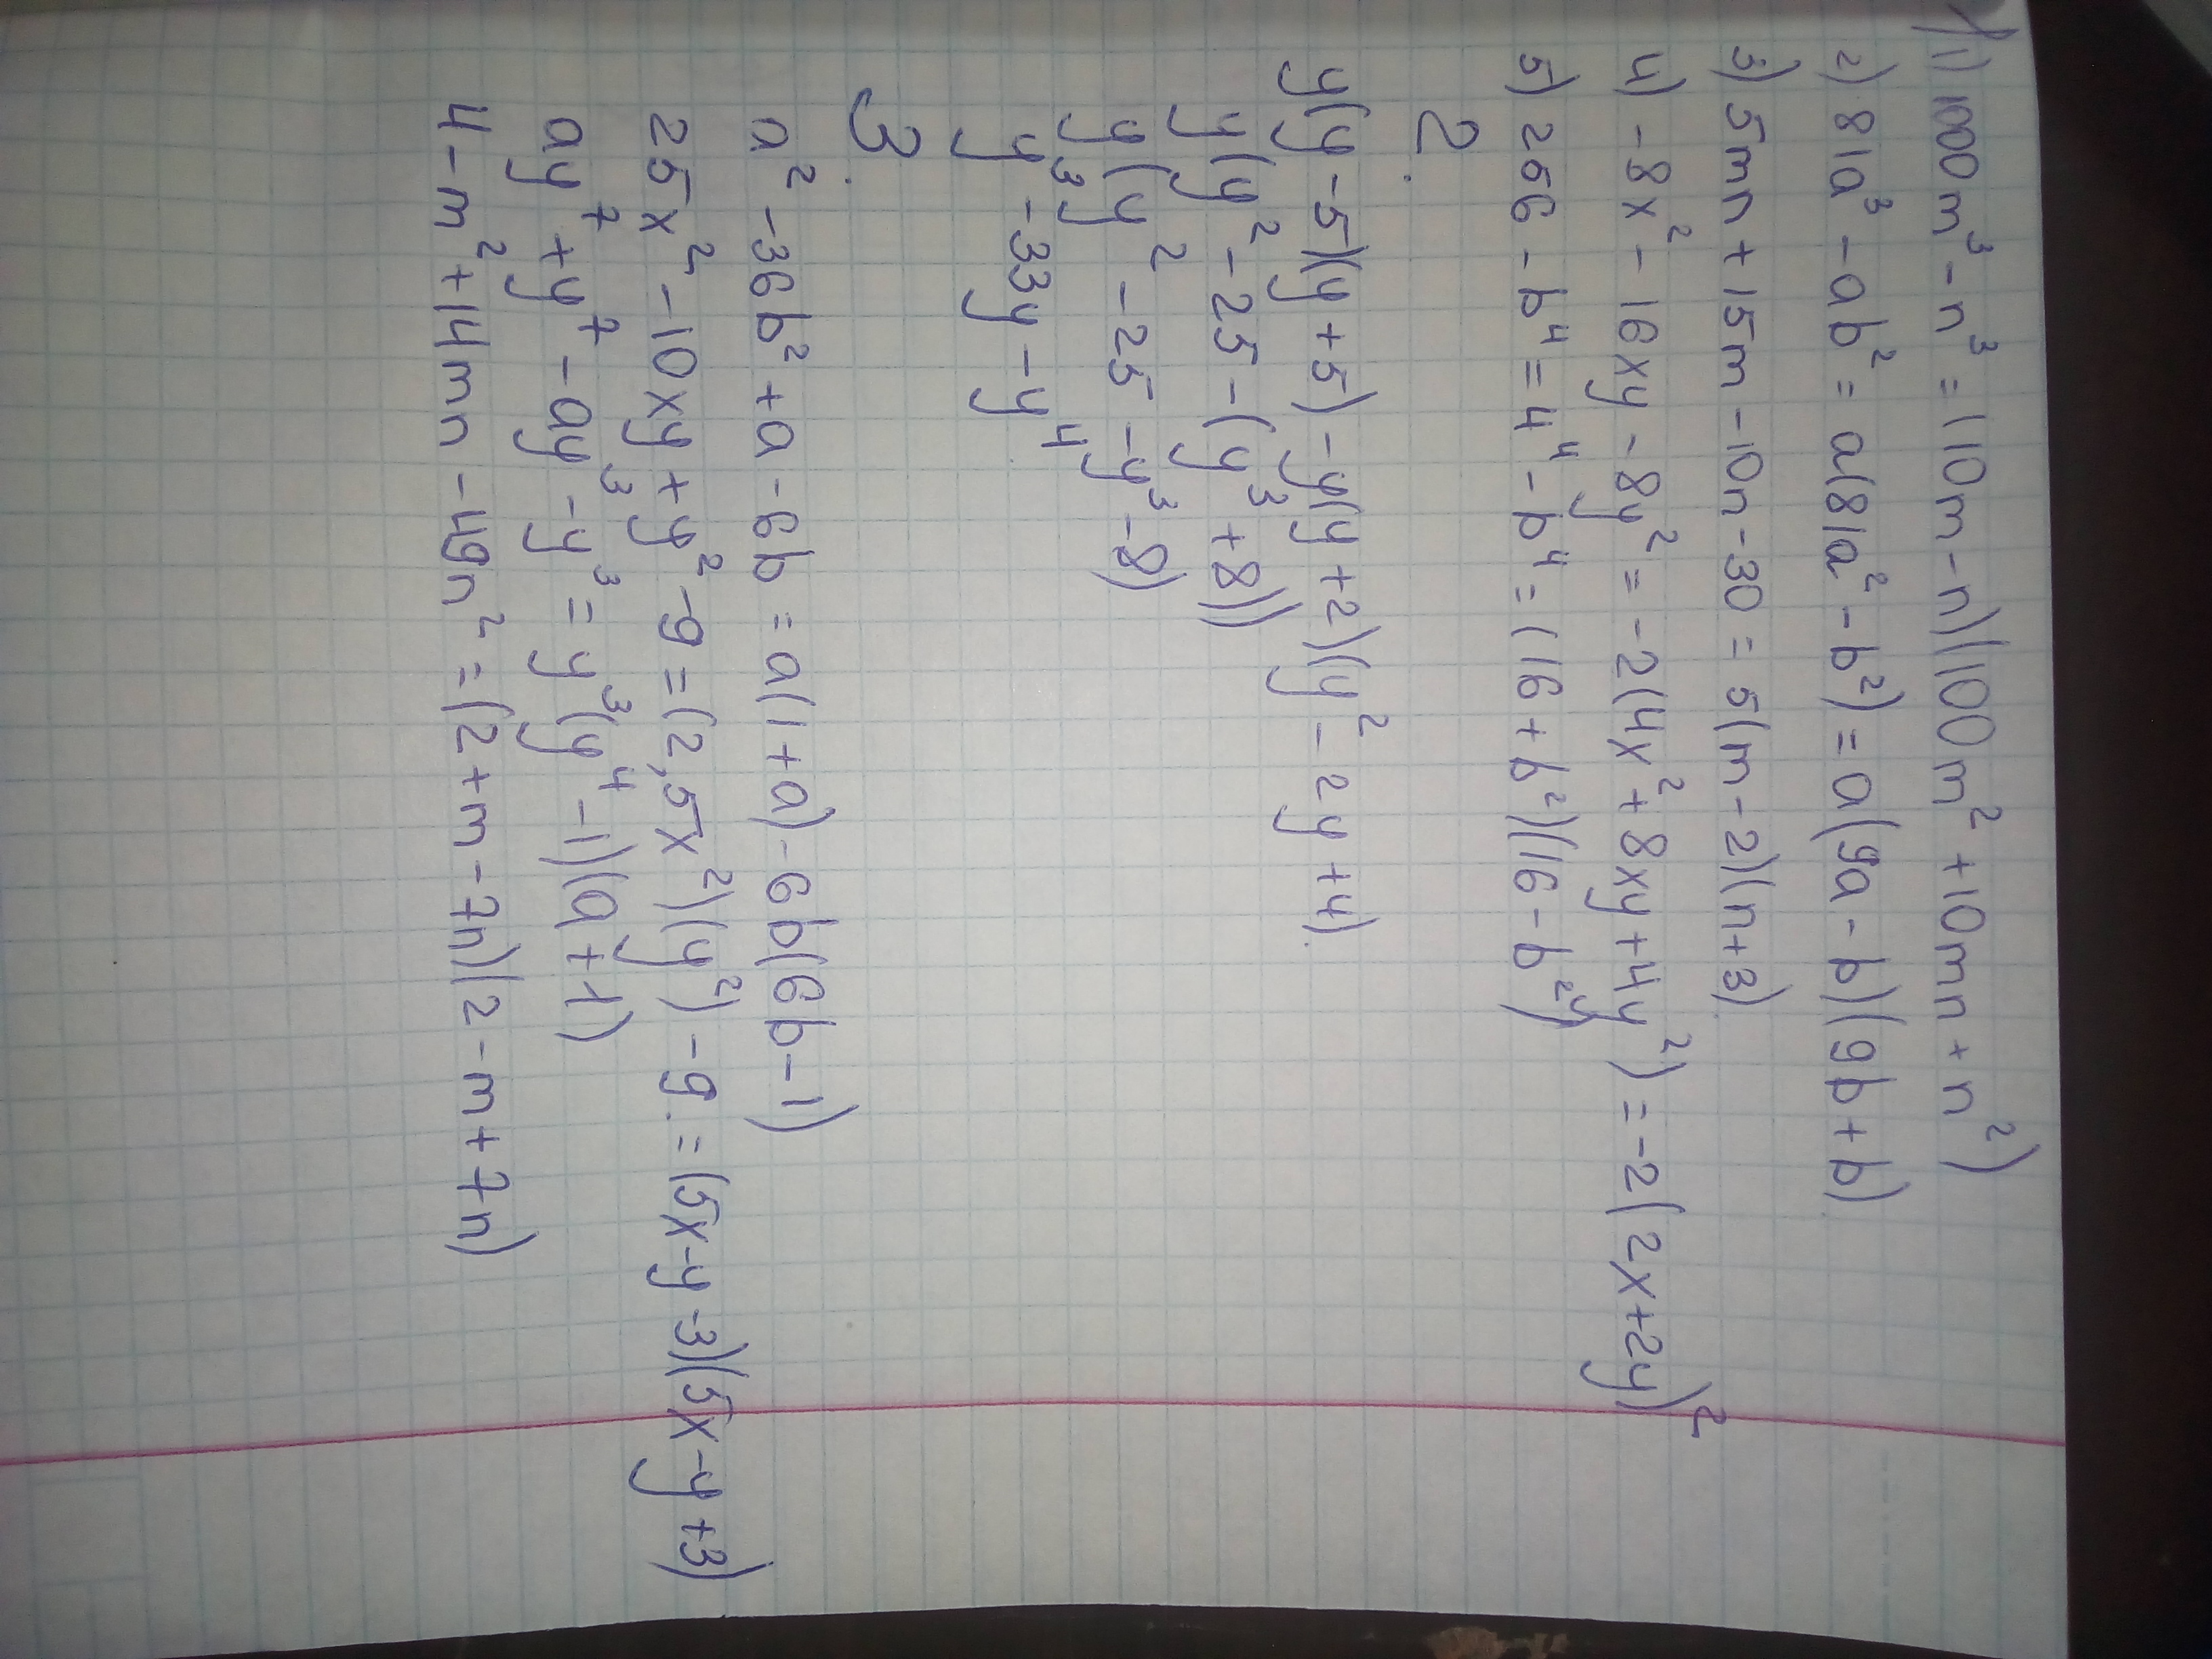 1) 1) 1000m³ - n³ = (10m - n)(100m² + 10mn + n²)
2) 81a³ - ab² = a(81a² - b²) = a(9a - b)(9b + b)
3) 5mn + 15m - 10n - 30 = 5(m - 2)(n + 3)
4) -8x² - 16xy - 8y² = -2(4x² + 8xy + 4y²) = -2(2x + 2y)²
5) 256 - b⁴ = 4⁴ - b⁴ = (16 + b²)(16 - b²)
2.
y(y - 5)(y + 5) - y(y + 2)(y² - 2y + 4)
y(y² - 25 - (y³ + 8))
y(y² - 25 - y³ - 8)
y³ - 33y - y⁴
3.
a² - 36b² + a - 6b = a(1 + a) - 6b(6b - 1)
25x² - 10xy + y² - 9 = (2,5x²)(y²) - 9. = (5x - y - 3)(5x - y + 3)
ay⁷ + y⁷ - ay³ - y³ = y³(y⁴ - 1)(a + 1)
4 - m² + 14mn - 49n² = (2 + m - 7n)(2 - m + 7n)